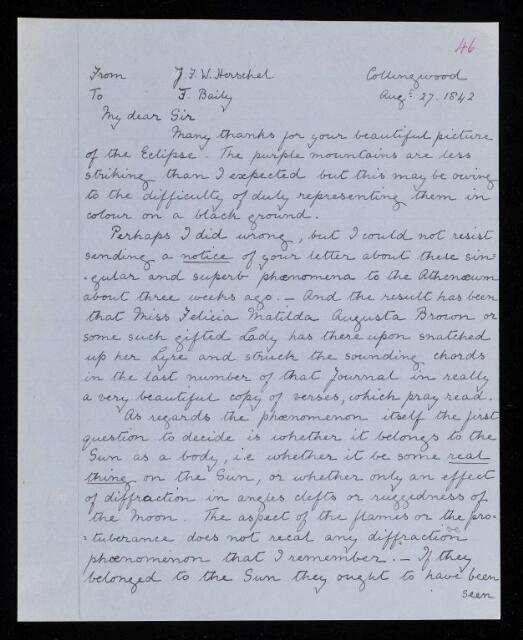 46
From J. F. W. Herschel Collingwood
To F. Baily Augt 27. 1842
My dear Sir
Many thanks for your beautiful picture
of the Eclipse. The purple mountains are less
striking than I expected but this may be owing
to the difficulty of duly representing them in
colour on a black ground.
Perhaps I did wrong, but I could not resist
sending a notice of your letter about these sin-
-gular and superb phœnomena to the Athenœum
about three weeks ago. — And the result has been
that Miss Felicia Matilda Augusta Brown or
some such gifted Lady has there upon snatched
up her Lyre and struck the sounding chords
in the last number of that Journal in really
a very beautiful copy of verses, which pray read.
As regards the phœnomenon itself the first
question to decide is whether it belongs to the
Sun as a body, i.e whether it be some real
thing on the Sun, or whether only an effect
of diffraction in angles clefts or ruggedness of
the Moon. The aspect of the flames or the pro-
-tuberance does not recal any diffraction
phœnomenon that I remember. — If they
belonged to the Sun they ought to have been
seen